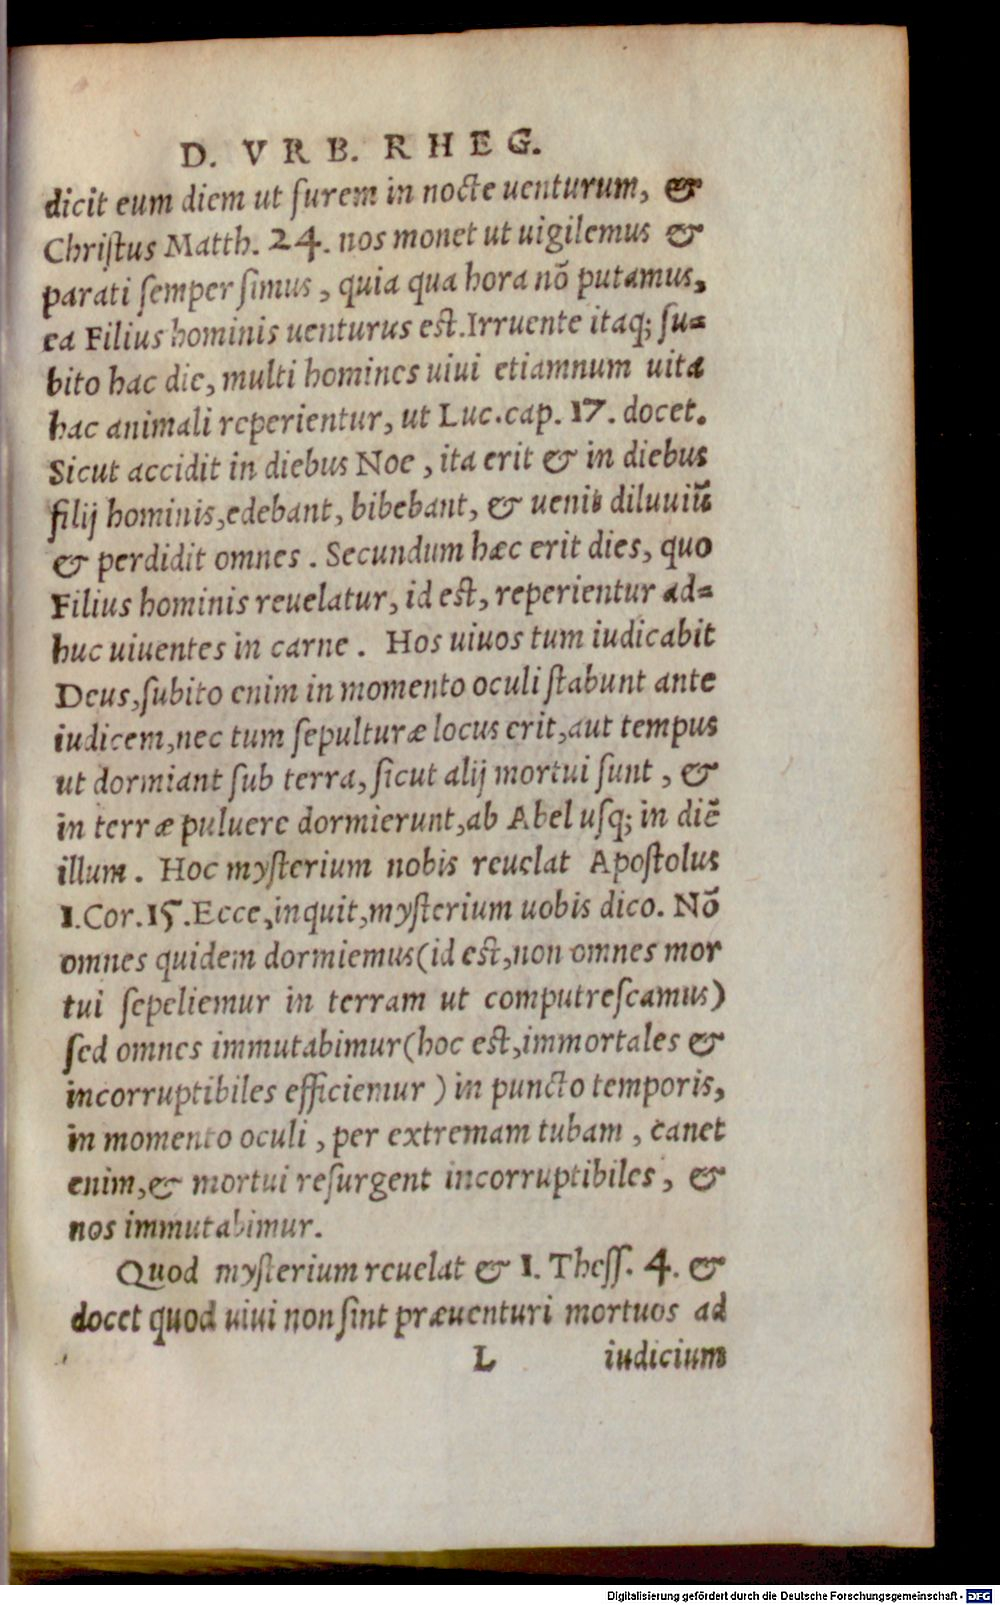 D. VRB. RHEG.
dicit eum diem ut furem in nocte uenturum, &
Chriſtus Matth. 24. nos monet ut uigilemus &
parati ſemper ſimus, quia qua hora nō putamus,
ea Filius hominis uenturus est. Irruente itaq; ſu=
bito hac die, multi homines uiui etiamnum uita
hac animali reperientur, ut Luc. cap. 17. docet.
Sicut accidit in diebus Noe, ita erit & in diebus
filij hominis, edebant, bibebant, & uenit diluuiū
& perdidit omnes. Secundum hæc erit dies, quo
Filius hominis reuelatur, id est, reperientur ad=
huc uiuentes in carne. Hos uiuos tum iudicabit
Deus, ſubito enim in momento oculi ſtabunt ante
iudicem, nec tum ſepulturæ locus erit, aut tempus
ut dormiant ſub terra, ſicut alij mortui ſunt, &
in terræ puluere dormierunt, ab Abel uſq; in diē
illum. Hoc myſterium nobis reuelat Apoſtolus
1. Cor. 15. Ecce, inquit, myſterium uobis dico. Nō
omnes quidem dormiemus (id est, non omnes mor
tui ſepeliemur in terram ut computreſcamus)
ſed omnes immutabimur (hoc est, immortales &
incorruptibiles efficiemur) in puncto temporis,
in momento oculi, per extremam tubam, canet
enim, & mortui reſurgent incorruptibiles, &
nos immutabimur.
Quod myſterium reuelat & 1. Theſſ. 4. &
docet quod uiui non ſint præuenturi mortuos ad
L iudicium
Digitalisierung gefördert durch die Deutsche Forschungsgemeinschaft - DFG